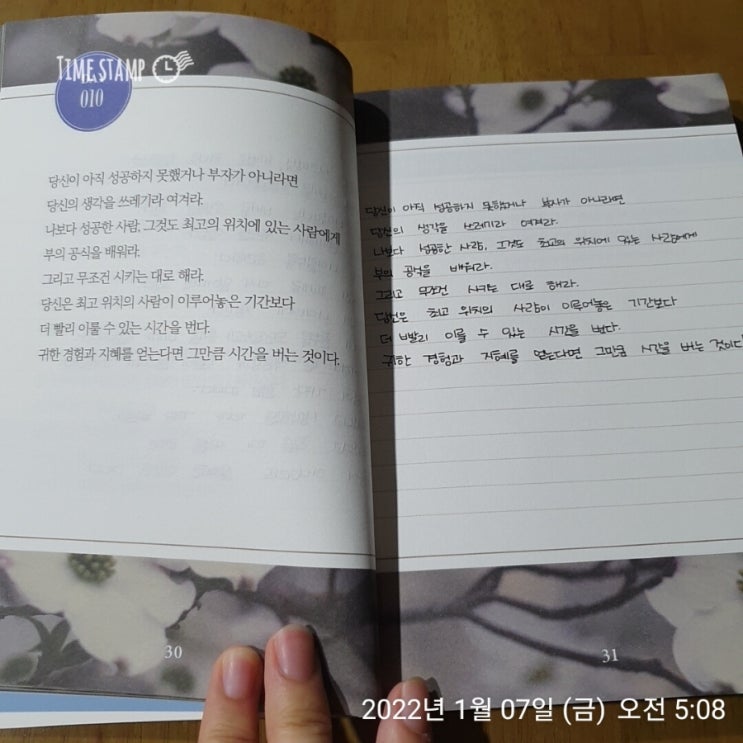 TIME STAMP
010
당신이 아직 성공하지 못했거나 부자가 아니라면
당신의 생각을 쓰레기라 여겨라.
나보다 성공한 사람, 그것도 최고의 위치에 있는 사람에게
부의 공식을 배워라.
그리고 무조건 시키는 대로 해라.
당신은 최고 위치의 사람이 이루어놓은 기간보다
더 빨리 이룰 수 있는 시간을 번다.
귀한 경험과 지혜를 얻는다면 그만큼 시간을 버는 것이다.
30
당신이 아직 성공하지 못했거나 부자가 아니라면
당신의 생각을 쓰레기라 여겨라.
나보다 성공한 사람, 그것도 최고의 위치에 있는 사람에게
부의 공식을 배워라.
그리고 무조건 시키는 대로 해라.
당신은 최고 위치의 사람이 이루어놓은 기간보다
더 빨리 이룰 수 있는 시간을 번다.
귀한 경험과 지혜를 얻는다면 그만큼 시간을 버는 것이다
31
2022년 1월 07일 (금) 오전 5:08